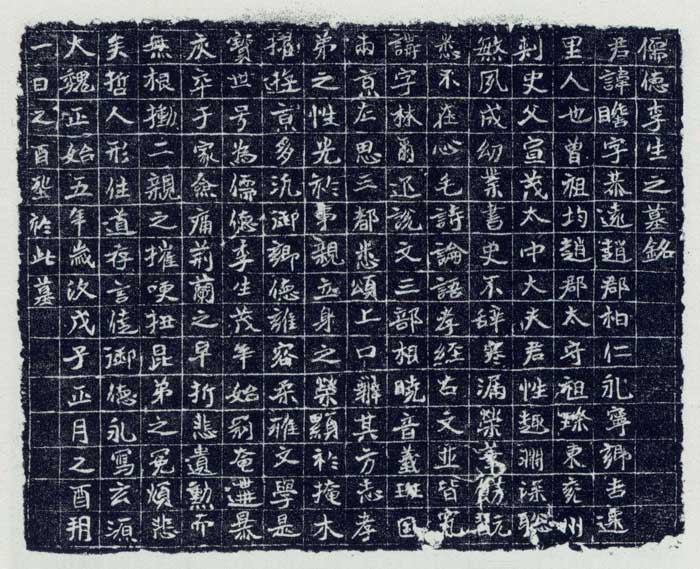 儒德李生之墓銘
君諱瞻字恭遠趙郡柏仁永寧鄉吉遷
里人也曾祖均趙郡太守祖璨東兗州
刾史父宣茂太中大夫君性趣淵深聡
敏夙成幼業書史不辞寒漏榮華
悉不在心毛詩論語孝経古文並皆究
講字林爾迩説文三部相曉音義班固
兩京左思三都悉頌上口辭其方志孝
弟之性光於事親立身之榮顯於掩木
擢遊京多沉御鄉德雍容柔雅文學是
寳世号為儒德李生茂年始奄遘暴
疾卒于家僉痛荊蘭之早折悲遺勲而
無根慟二親之摧哽扭昆弟之冤煩悲
矣哲人形住道存言御德永寫玄源
大魏正始五年歲次戊子正月乙酉朔
一日乙酉塟於此墓